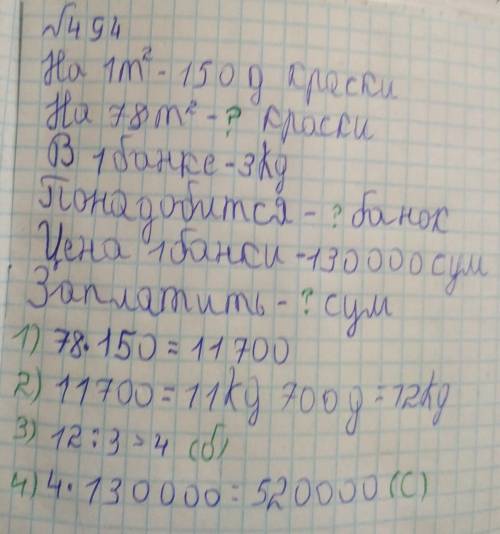 №494
На 1m² - 150g краски
На 78m² - ? краски
В 1 банке - 3kg
Понадобится - ? банок
Цена 1 банки - 130000 сум
Заплатить - ? сум
1) 78·150=11700
2) 11700=11kg 700g=12kg
3) 12:3=4 (б)
4) 4·130000=520000 (с)